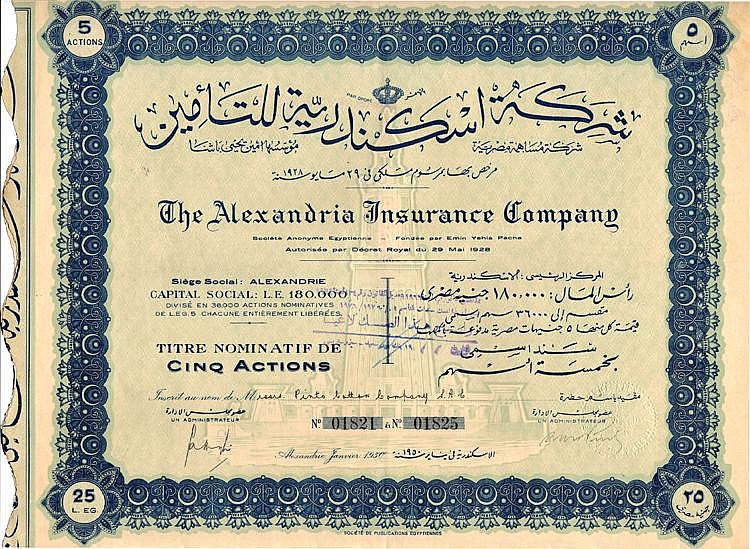 5
ACTIONS
٥
اسهم
شركة اسكندرية للتأمين
شركة مساهمة مصرية
مؤسسها امين يحيى باشا
مرخص بها بمرسوم ملكى فى ٢٩ مايو ١٩٢٨
The Alexandria Insurance Company
Société Anonyme Egyptienne - Fondée par Emin Yehia Pacha
Autorisée par Décret Royal du 29 Mai 1928
Siège Social: ALEXANDRIE
CAPITAL SOCIAL: L.E. 180.000
DIVISÉ EN 36.000 ACTIONS NOMINATIVES
DE L.E.G. 5 CHACUNE ENTIÈREMENT LIBÉRÉES.
المركز الرئيسى: الاسكندرية
رأس المال: ١٨٠,٠٠٠ جنيه مصرى
مقسم إلى ٣٦٠٠٠ سهم اسمى
قيمة كل منها ٥ جنيهات مصرية مدفوعة بأكملها
هذا الصك لاغيا
TITRE NOMINATIF DE
CINQ ACTIONS
سند اسمى
بخمسة اسهم
Inscrit au nom de Messrs. Pinto Cotton Company S.A.E
مقيد باسم حضرة
Nº 01821 à Nº 01825
عضو مجلس الادارة
UN ADMINISTRATEUR
عضو مجلس الادارة
UN ADMINISTRATEUR
Alexandrie, Janvier 1950
الاسكندرية فى يناير ١٩٥٠
25
L. EG.
٢٥
جنيه مصرى
SOCIÉTÉ DE PUBLICATIONS EGYPTIENNES